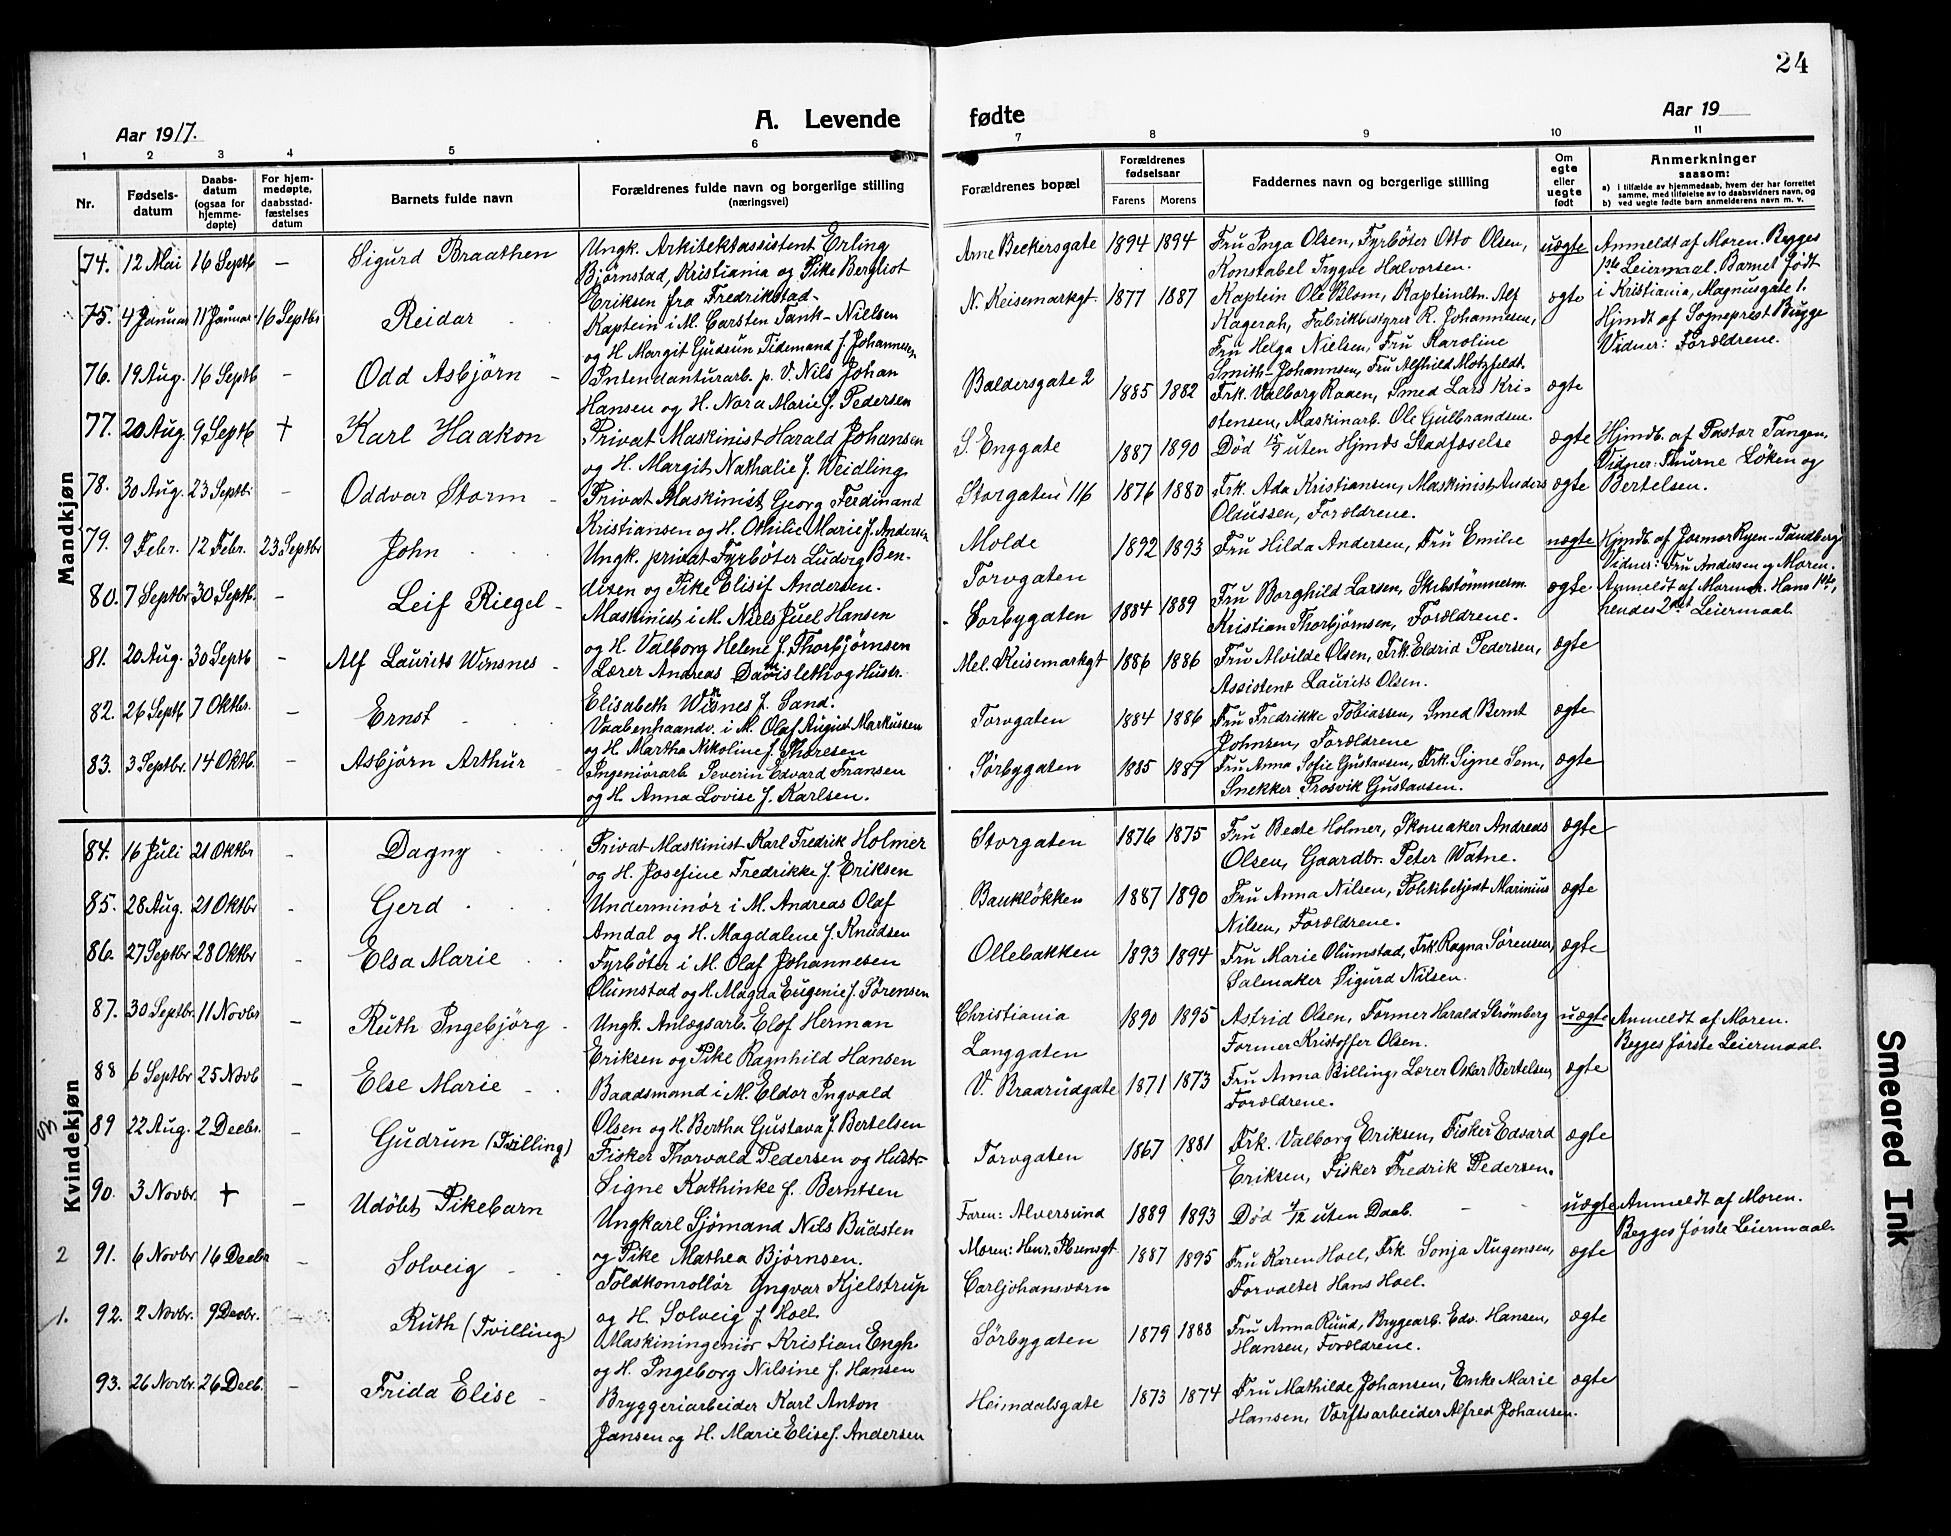 24
Aar 1917.
A. Levende
fødte
Aar 19
1 2 3 4 5 6 7 8 9 10 11
Nr.
Fødsels-
datum
Daabs-
datum
(ogsaa for
hjemme-
døpte)
For hjem-
medøpte,
daabsstad-
fæstelses
datum
Barnets fulde navn
Forældrenes fulde navn og borgerlige stilling
(næringsvei)
Forældrenes bopæl
Forældrenes
fødselsaar
Farens Morens
Faddernes navn og borgerlige stilling
Om
egte
eller
uegte
født
Anmerkninger
saasom:
a) i tilfælde av hjemmedaab, hvem der har forrettet
samme, med tilføielse av to daabsvidners navn, og
b) ved uegte fødte barn anmelderens navn m. v.
Mandkjøn
74. 12 Mai 16 Septb — Sigurd Braathen
Ungk. Arkitektassistent Erling
Bjørnstad, Kristiania og Pike Bergliot
Eriksen fra Fredrikstad
Arne Beckersgate 1894 1894
Fru Inga Olsen, Fyrbøter Otto Olsen,
Konstabel Trygve Halvorsen.
uægte
Anmeldt af Moren. Begges
1ste Leiermaal. Barnet født
i Kristiania, Magnusgate 1.
75. 4 Januar 11 Januar 16 Septbr Reidar
Kaptein i M. Carsten Tank-Nielsen
og H. Margit Gudrun Tidemand f. Johannesen
N. Keisemarkgt. 1877 1887
Kaptein Ole Blom, Kapteinltn. Alf
Kagerah, Fabrikbestyrer R. Johannesen,
Fru Helga Nielsen, Fru Karoline
Smith-Johannsen, Fru Alfhild Mohrfeldt.
ægte
Hjmdt af Sogneprest Bugge
Vidner: Forældrene.
76. 19 Aug. 16 Septb — Odd Asbjørn
Intendanturarb. p. V. Nils Johan
Hansen og H. Nora Marie f. Pedersen
Baldersgate 2 1885 1882
Frk. Valborg Raaen, Smed Lars Kri-
stensen, Maskinarb. Ole Gulbrandsen.
ægte
77. 20 Aug. 9 Septb † Karl Haakon
Privat Maskinist Harald Johansen
og H. Margit Nathalie f. Weidling
S. Enggate 1887 1890
Død uten Hjmds Stadfæselse
ægte
Hjmdb. af Pastor Tangen,
Vidner: Løken og
Bertelsen.
78. 30 Aug. 23 Septb. — Oddvar Storm
Privat Maskinist Georg Ferdinand
Kristiansen og H. Othilie Marie f. Andersen
Storgaten 116 1876 1880
Frk. Ada Kristiansen, Maskinist Anders
Olaussen, Forældrene.
ægte
79. 9 Febr. 12 Febr. 23 Septbr John
Ungk. privat Fyrbøter Ludvig Ben-
disen og Pike Elisif Andersen.
Molde
Torvgaten
1892 1893
Fru Hilda Andersen, Fru Emilie
uægte
Hjmdb. af Jormor Ryen-Tandberg
Vidner: Fru Andersen og Moren.
Anmeldt af Moren. Hans 1ste,
hendes 2det Leiermaal
80. 7 Septbr 30 Septb. — Leif Riegel
Maskinist i M. Niels Juel Hansen
og H. Valborg Helene f. Thorbjørnsen
Sørbygaten 1884 1889
Fru Borghild Larsen, Skibstømmerm.
Kristian Thorbjørnsen, Forældrene.
ægte
81. 20 Aug. 30 Septb — Alf Laurits Winsnes
Lærer Andreas Davisleth og Hustr.
Elisabeth Winsnes f. Sand.
Mel. Keisemarkgt 1886 1886
Fru Alvilde Olsen, Frk. Eldrid Pedersen,
Assistent Laurits Olsen.
ægte
82. 26 Septb 7 Oktbr. — Ernst
Vaabenhaandv. i M. Olaf August Markussen
og H. Martha Nikoline f. Thoresen
Torvgaten 1884 1886
Fru Fredrikke Tobiassen, Smed Bernt
Johnsen, Forældrene
ægte
83. 3 Septbr. 14 Oktb. — Asbjørn Arthur
Ingeniørarb Severin Edvard Fransen
og H. Anna Lovise f. Karlsen.
Sørbygaten 1885 1887
Fru Anna Sofie Gustavsen, Frk. Signe Sem,
Snekker Prosvik Gustavsen.
ægte
Kvindekjøn
84. 16 Juli 21 Oktbr - Dagny
Privat Maskinist Karl Fredrik Holmer
og H. Josefine Fredrikke f. Eriksen
Storgaten 1876 1875
Fru Beate Holmer, Skomaker Andreas
Olsen, Gaardbr. Peter Watne.
ægte
85. 28 Aug. 21 Oktbr - Gerd
Underminør i M. Andreas Olaf
Amdal og H. Magdalene f. Knudsen
Baukløkken 1887 1890
Fru Anna Nilsen, Politibetjent Marinius
Nilsen, Forældrene.
ægte
86. 27 Septbr 28 Oktbr - Elsa Marie
Fyrbøter i M. Olaf Johannesen
Olumstad og H. Magda Eugenie f. Sørensen
Ollebakken 1893 1894
Fru Marie Olumstad, Frk. Ragna Sørensen,
Salmaker Sigurd Nilsen.
ægte
87. 30 Septbr. 11 Novbr - Ruth Ingebjørg
Ungk. Anlægsarb. Elof Herman
Eriksen og Pike Ragnhild Hansen
Christiania
Langgaten
1890 1895
Astrid Olsen, Former Harald Strömberg
Former Kristoffer Olsen.
uægte
Anmeldt af Moren.
Begges første Leiermaal.
88 6 Septbr 25 Novb — Else Marie
Baadsmand i M. Eldor Ingvald
Olsen og H. Bertha Gustava f. Bertelsen
V. Braarudgate 1871 1873
Fru Anna Billing, Lærer Oskar Bertelsen,
Forældrene.
ægte
93
89 22 Aug. 2 Decbr. — Gudrun (Tvilling)
Fisker Thorvald Pedersen og Hustr
Signe Kathinke f. Berntsen
Torvgaten 1867 1881
Frk. Valborg Eriksen, Fisker Edvard
Eriksen, Fisker Fredrik Pedersen.
ægte
90. 3 Novbr. † — Udöbt Pikebarn
Ungkarl Sjømand Nils Budsten
og Pike Mathea Bjørnsen.
Faren: Alversund
Moren:
1889 1893
Død uten Daab.
uægte
Anmeldt af Moren.
Begges første Leiermaal.
2
91. 6 Novbr 16 Decbr — Solveig
Toldkonrollør Yngvar Kjelstrup
og H. Solveig f. Hoel.
Carljohansværn 1887 1895
Fru Karen Hoel, Frk Sonja Augensen,
Forvalter Hans Hoel.
ægte
1.
92. 2 Novbr. 9 Decbr. — Ruth (Tvilling)
Maskiningeniør Kristian Engh
og H. Ingeborg Nilsine f. Hansen
Sörbygaten 1879 1888
Fru Anna Ruud, Bryggearb. Edv. Hansen,
Hansen, Forældrene.
ægte
93. 26 Novbr. 26 Decb. — Frida Elise
Bryggeriarbeider Karl Anton
Jansen og H. Marie Elise f. Andersen
Heimdalsgate 1873 1874
Fru Mathilde Johansen, Enke Marie
Hansen, Værftsarbeider Alfred Johansen.
ægte
Smeared Ink